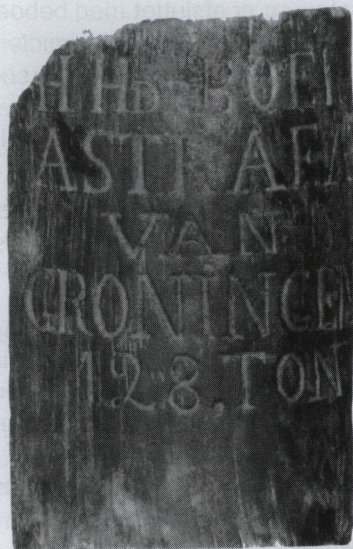 H H DE BOER
ASTRAEA
VAN
GRONINGEN
128, TON